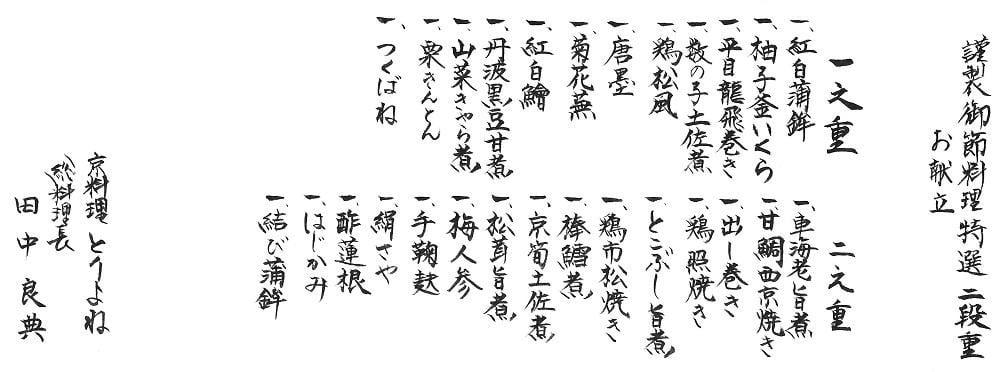 謹製御節料理特選 二段重
お献立
一之重
一、紅白蒲鉾
一、柚子釜いくら
一、平目龍飛巻き
一、数の子土佐煮
一、鶏松風
一、唐墨
一、菊花蕪
一、紅白鱠
一、丹波黒豆甘煮
一、山菜きゃら煮
一、栗きんとん
一、つくばね
二之重
一、車海老旨煮
一、甘鯛西京焼き
一、出し巻き
一、鶏照焼き
一、とこぶし旨煮
一、鶏市松焼き
一、棒鱈煮
一、京筍土佐煮
一、松茸旨煮
一、梅人参
一、手鞠麸
一、絹さや
一、酢蓮根
一、はじかみ
一、結び蒲鉾
京料理 とうよね
総料理長
田中良典